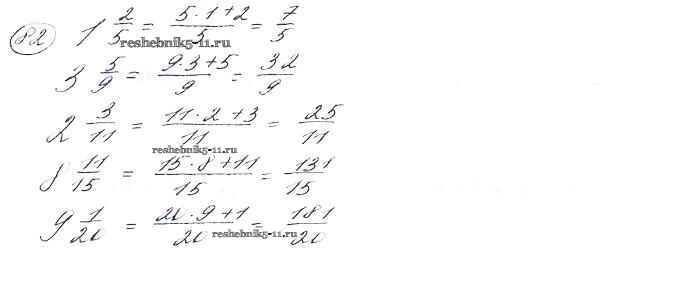 82) 1 2/5 = (5·1+2)/5 = 7/5
reshebnik5-11.ru
3 5/9 = (9·3+5)/9 = 32/9
2 3/11 = (11·2+3)/11 = 25/11
reshebnik5-11.ru
8 11/15 = (15·8+11)/15 = 131/15
9 1/20 = (20·9+1)/20 = 181/20
reshebnik5-11.ru